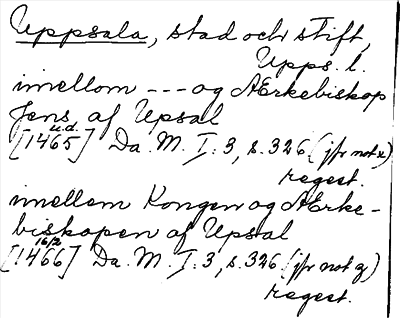 Uppsala, stad och stift,
Upps. l.
imellom --- og Ærkebiskop
Jens af Upsal
u.d.
[1465] Da. M. I. 3, s. 326 (jfr not x)
regest.
imellem Kongen og Ærke-
biskopen af Upsal
16/2
[1466] Da. M. I. 3, s. 326 (jfr not y)
regest.